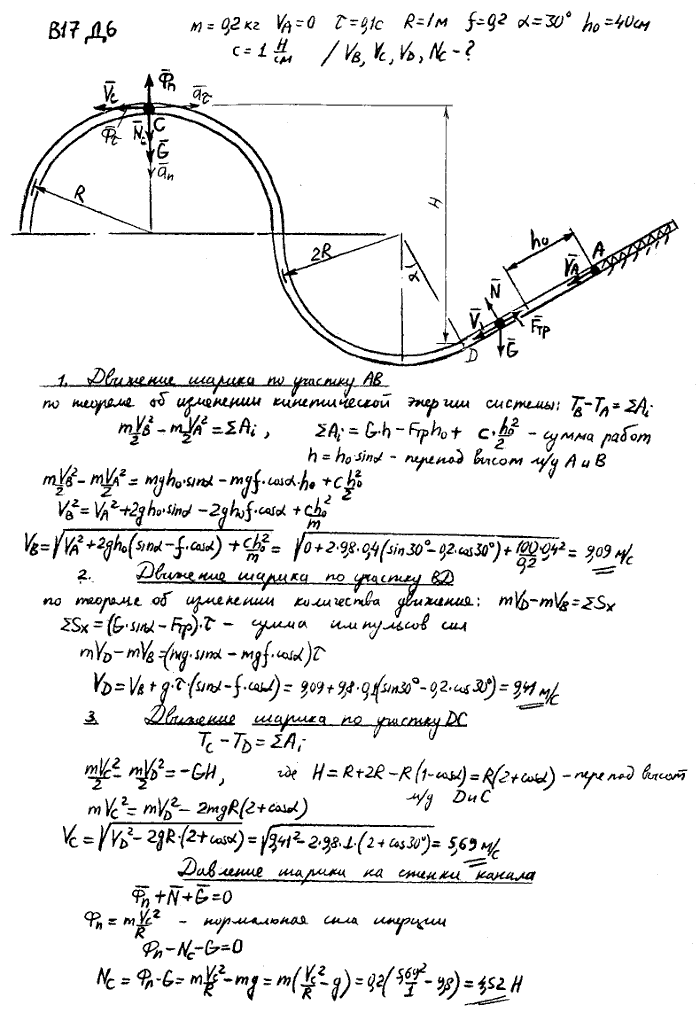 В17 Д6
m = 0,2 кг V_A = 0 τ = 0,1с R = 1м f = 0,2 α = 30° h₀ = 40см
c = 1 Н/см / V_B, V_C, V_D, N_C - ?
Φ̄n
V̄c
āτ
Φ̄τ
N̄c
C
Ḡ
ān
R
H
2R
α
h₀
A
V̄A
N̄
V̄
F̄тр
D
Ḡ
1. Движение шарика по участку AB
по теореме об изменении кинетической энергии системы: T_B - T_A = ΣAi
mV_B²/2 - mV_A²/2 = ΣAi, ΣAi = G·h - Fтр h₀ + c·h₀²/2 - сумма работ
h = h₀·sinα - перепад высот м/д A и B
mV_B²/2 - mV_A²/2 = mgh₀·sinα - mgf·cosα·h₀ + c h₀²/2
V_B² = V_A² + 2gh₀·sinα - 2gh₀f·cosα + ch₀²/m
V_B = √(V_A² + 2gh₀(sinα - f·cosα) + ch₀²/m) = √(0 + 2·9,8·0,4(sin30° - 0,2·cos30°) + 100/0,2·0,4²) = 9,09 м/с
2. Движение шарика по участку BD
по теореме об изменении количества движения: mV_D - mV_B = ΣSx
ΣSx = (G·sinα - Fтр)·τ - сумма импульсов сил
mV_D - mV_B = (mg·sinα - mgf·cosα)τ
V_D = V_B + g·τ·(sinα - f·cosα) = 9,09 + 9,8·0,1(sin30° - 0,2·cos30°) = 9,41 м/с
3. Движение шарика по участку DC
T_C - T_D = ΣAi
mV_C²/2 - mV_D²/2 = -GH, где H = R + 2R - R(1 - cosα) = R(2 + cosα) - перепад высот
м/д D и C
mV_C² = mV_D² - 2mgR(2 + cosα)
V_C = √(V_D² - 2gR·(2 + cosα)) = √(9,41² - 2·9,8·1·(2 + cos30°)) = 5,69 м/с
Давление шарика на стенки канала
Φ̄n + N̄ + Ḡ = 0
Φn = mV_C²/R - нормальная сила инерции
Φn - N_C - G = 0
N_C = Φn - G = mV_C²/R - mg = m(V_C²/R - g) = 0,2(5,69²/1 - 9,8) = 4,52 Н